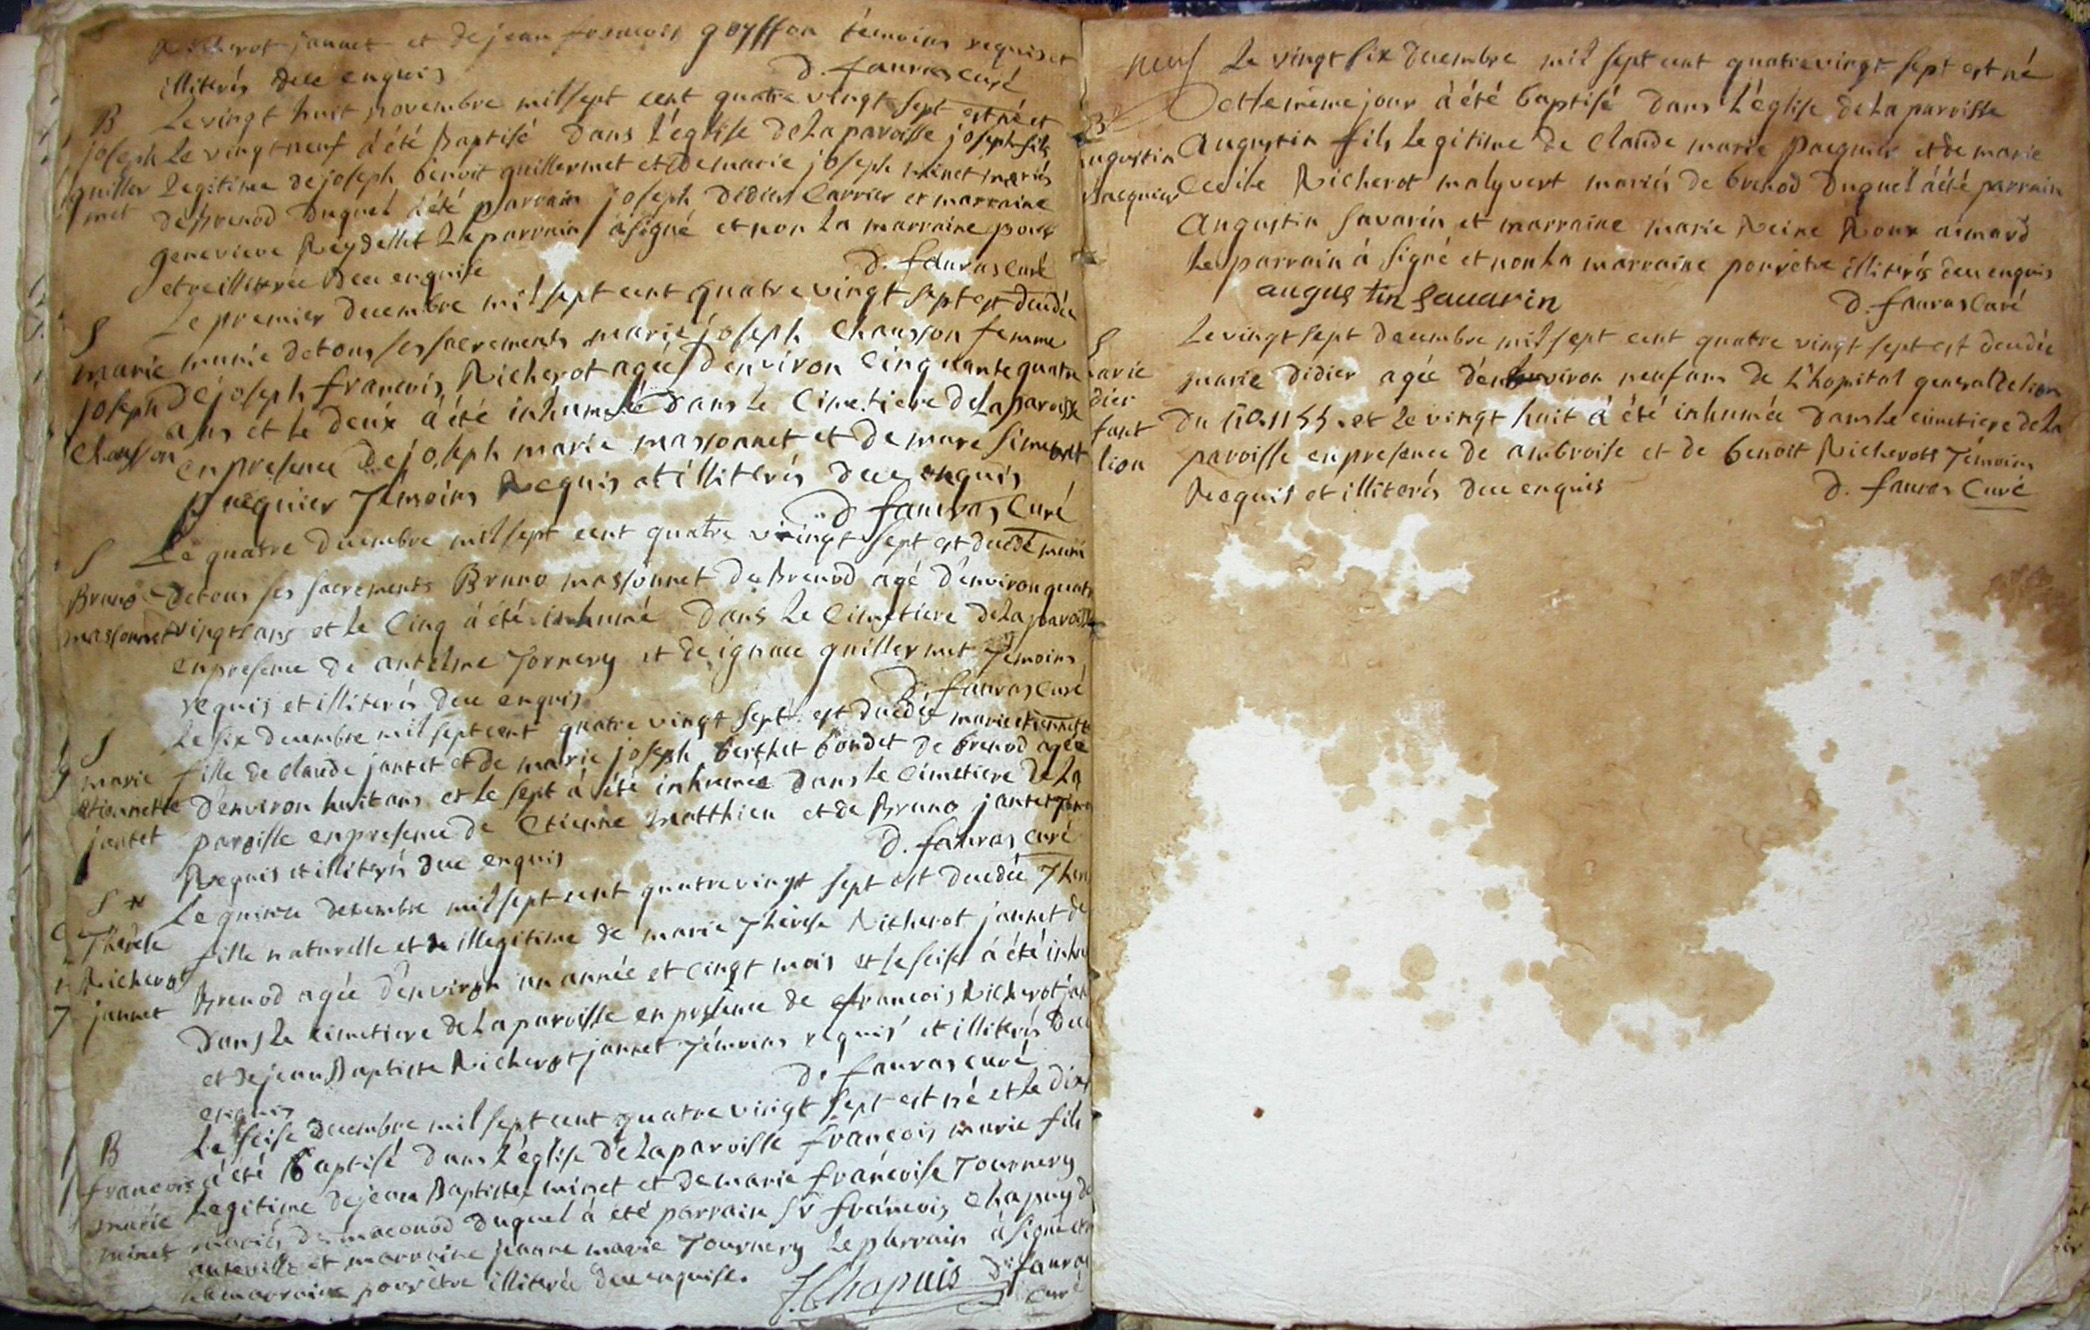 Richerot jannet et de jean francois goyffon témoins requis et
illiterés deue enquis
d. fauras curé
B
joseph
guiller
met
Le vingt huit novembre mil sept cent quatre vingt sept est né et
Le vingt neuf à été Baptisé dans L'église de La paroisse joseph fils
Legitime de joseph benoit guillermet et de marie joseph minet mariés
de Brenod Duquel à été parrain joseph Didier Carrier et marraine
genevieve Reydellet Le parrain à signé et non La marraine pour
etre illiterée deue enquise
d. fauras curé
S
marie
joseph
Chausson
Le premier decembre mil sept cent quatre vingt sept est decedée
munie de tous ses sacrements marie joseph Chausson femme
De joseph francois Richerot agée d'environ cinquante quatre
ans et le deux à été inhumée dans Le Cimetiere de La paroisse
en presence De joseph marie massonnet et de
pacquier Témoins Requis et illiterés deue enquis
d. fauras Curé
S
Bruno
massonnet
Le quatre decembre mil sept cent quatre vingt sept est decedé muni
De tous ses sacrements Bruno massonnet de Brenod agé d'environ quatre
vingts ans et le Cinq à été inhumé dans Le Cimetiere De La paroisse
en presence de antelme Tornery et de ignace guillermet Témoins
requis et illiterés deue enquis
d. fauras curé
S
marie
etiennette
jantet
Le six decembre mil sept cent quatre vingt sept est decedée marie etiennette
fille de claude jantet et de marie joseph berthet bondet de brenod agée
d'environ huit ans et le sept à été inhumée dans le Cimetiere de La
paroisse en presence de Etienne Matthieu et de Bruno jantet
Requis et illiterés deue enquis
d. fauras curé
S
Therese
Richerot
jannet
Le quinze decembre mil sept cent quatre vingt sept est decedée
fille naturelle et illegitime de marie Thérese Richerot jannet de
Brenod agée d'environ un année et cingt mois et le seise à été
Dans Le cimetiere de La paroisse en presence de francois Richerot
et de jean Baptiste Richerot jannet Témoins requis et illiterés deue
enquis
d. fauras curé
B
francois
marie
minet
Le seise decembre mil sept cent quatre vingt sept est né et le dix
à été baptisé dans L'église de La paroisse francois marie fils
Legitime de jean Baptiste minet et de marie francoise Tournery
mariés de macconod duquel à été parrain Sr francois Chapuy
et marraine jeanne marie Tournery Le parrain à signé et
La marraine pour être illiterée deue enquise.
F. Chapuis
d. fauras
Curé
neuf
B
augustin
pacquier
Le vingt six decembre mil sept cent quatre vingt sept est né
et le même jour à été baptisé dans L'église de La paroisse
Augustin fils Legitime de Claude marie pacquier et de marie
Cecile Richerot malyvert mariés de brenod Duquel à été parrain
Augustin Savarin et marraine marie Reine Roux aimard
Le parrain à signé et non La marraine pour être illiterés deue enquis
augustin Savarin
d. fauras Curé
S
arie
dier
fant
lion
Le vingt sept decembre mil sept cent quatre vingt sept est decedée
marie didier agée d'environ neuf ans de L'hopital general de lion
et Le vingt huit à été inhumée dans le cimetiere de La
paroisse en presence de ambroise et de benoit Richerots Témoins
Requis et illiterés deue enquis
d. fauras Curé